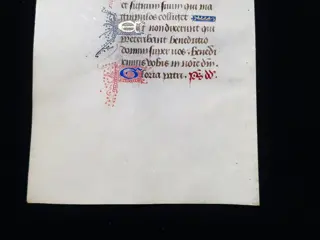 et sicuti fenum qui ma
nipulos colliget
Et non dixerunt qui
preteribant benedictio
domini super nos benedi
ximus vobis in noie dni
Gloria patri ps dd